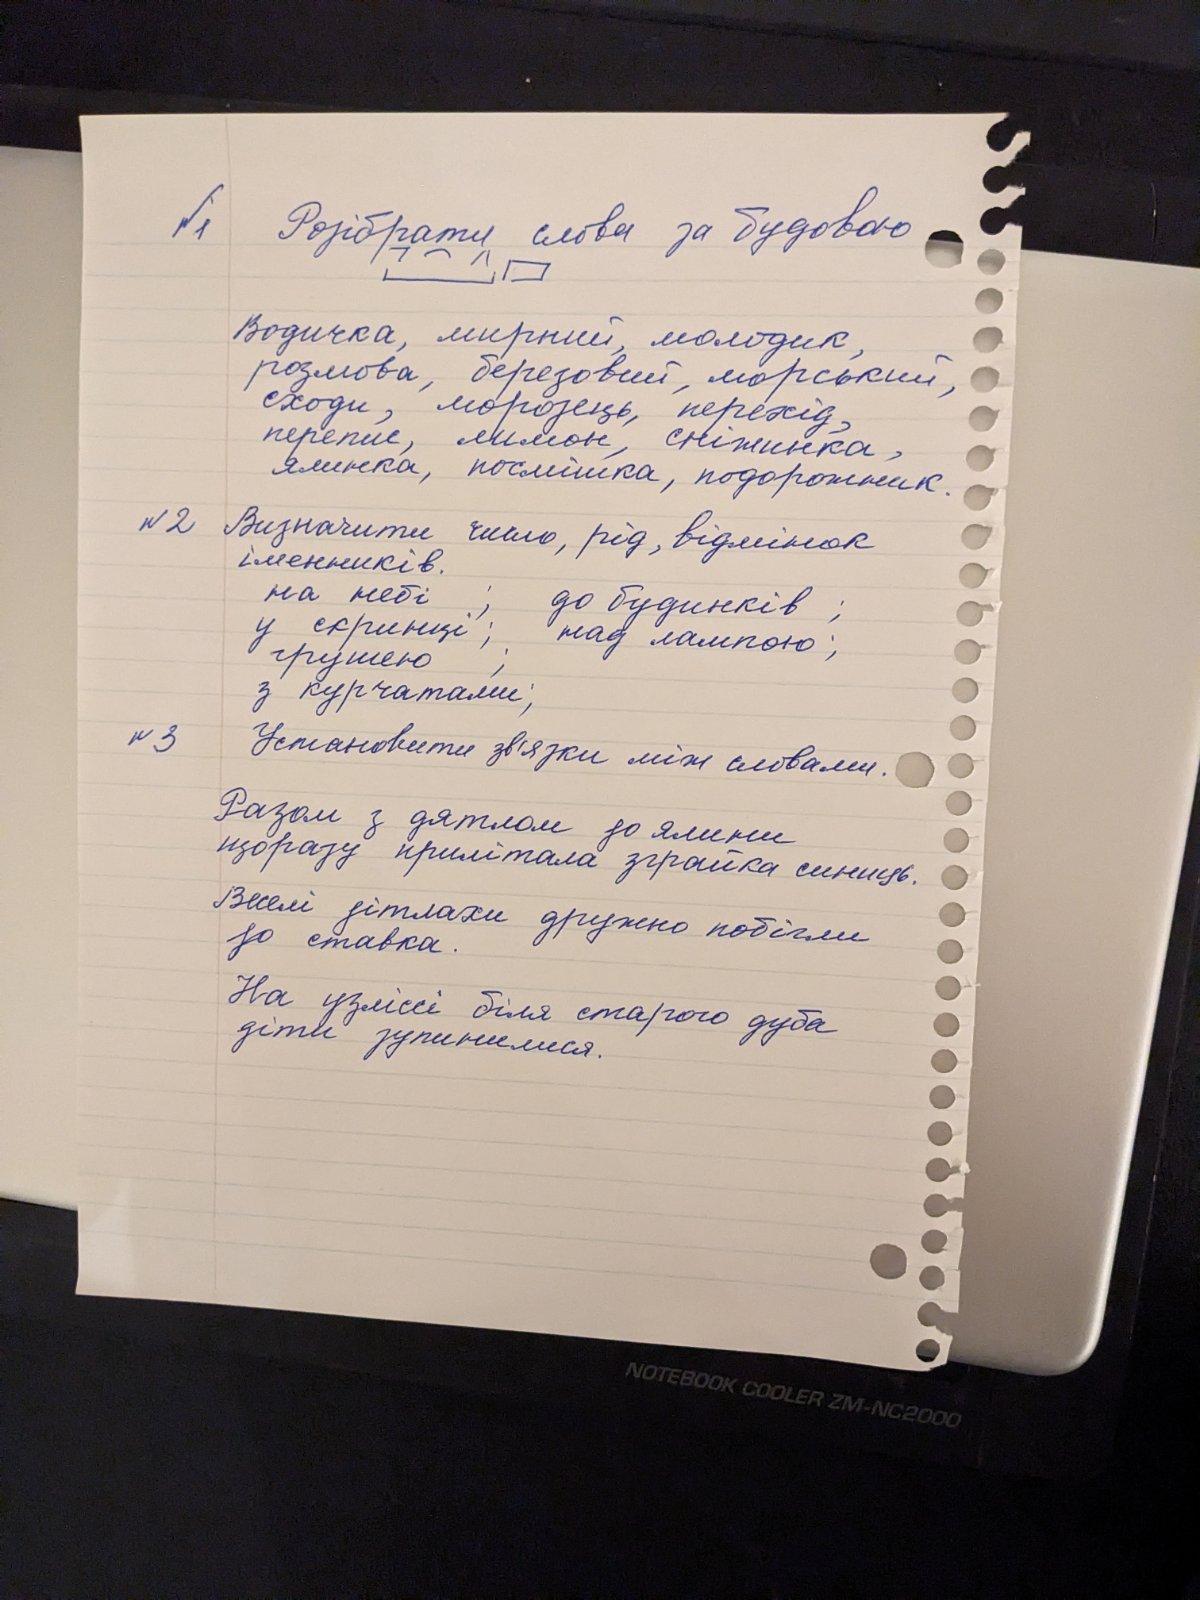 №1 Розібрати слова за будовою
Водичка, мирний, молодик,
розмова, березовий, морський,
сходи, морозець, перехід,
перепис, лимон, сніжинка,
ялинка, посмішка, подорожник.
№2 Визначити число, рід, відмінок
іменників.
на небі ; до будинків ;
у скринці ; над лампою ;
грушею ;
з курчатами ;
№3 Установити зв'язки між словами.
Разом з дятлом до ялини
щоразу прилітала зграйка синиць.
Веселі дітлахи дружно побігли
до ставка.
На узліссі біля старого дуба
діти зупинилися.
NOTEBOOK COOLER ZM-NC2000